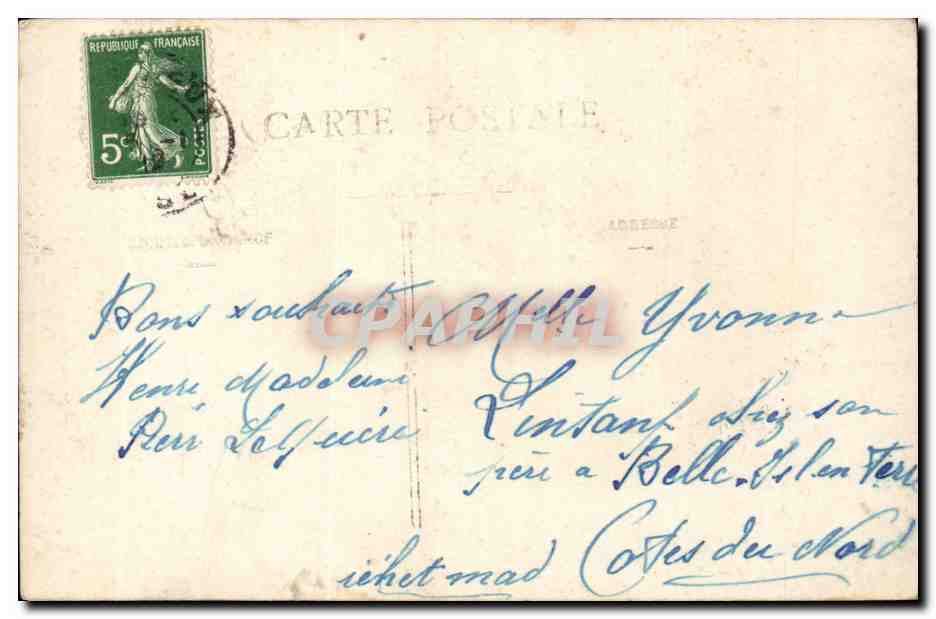 REPUBLIQUE FRANÇAISE
5c
POSTES
CARTE POSTALE
ADRESSE
CPAPHIL
Bons souhaits
Henri Madeleine
Pierr
Melle Yvonne
Lintanf chez son
père a Belle-Isl en Terre
Cotes du Nord
iéhet mad